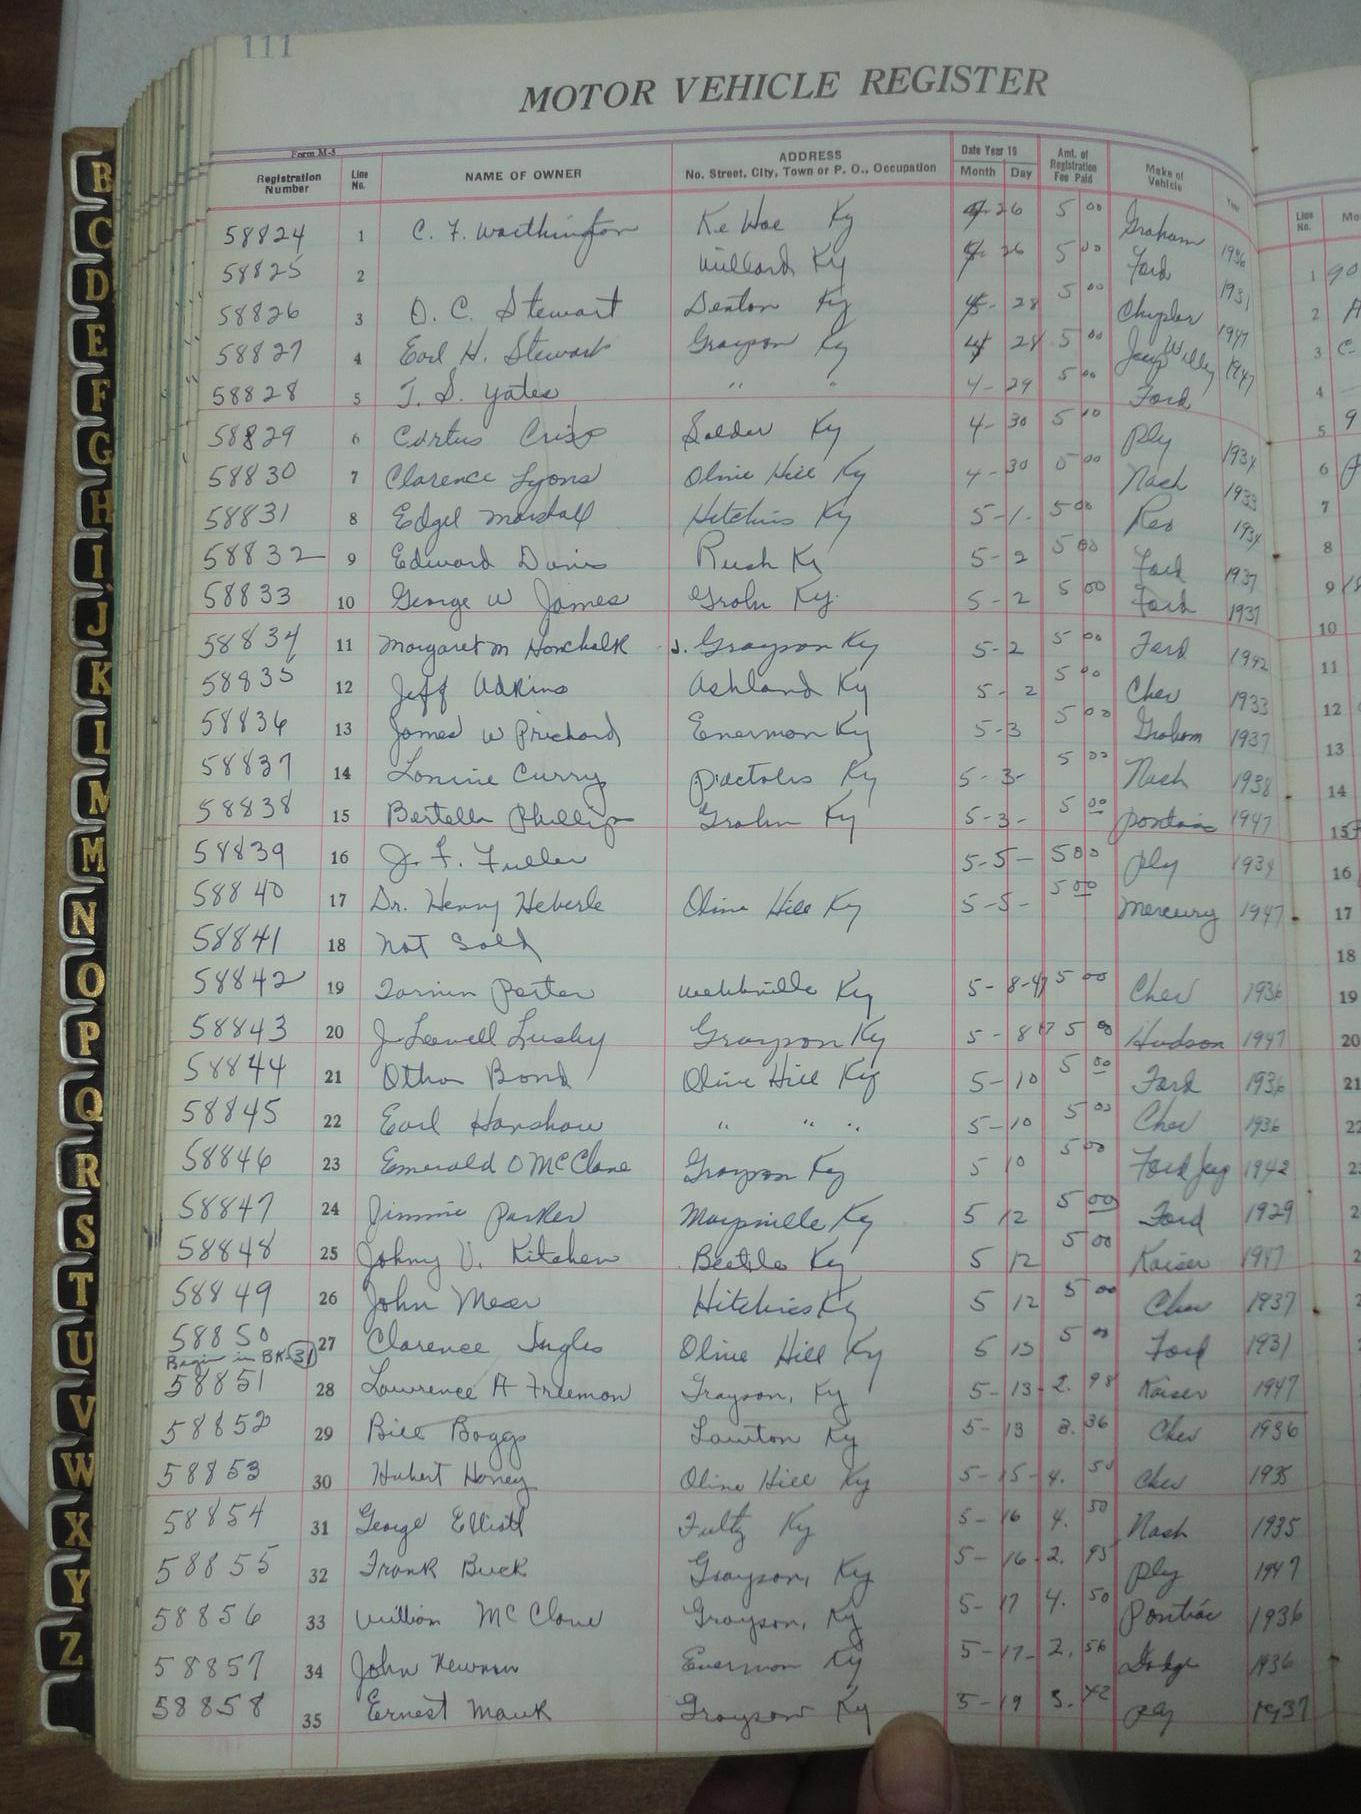 111
MOTOR VEHICLE REGISTER
Form M-5
Registration Number Line No. NAME OF OWNER ADDRESS No. Street, City, Town or P. O., Occupation Date Year 19 Month Day Amt. of Registration Fee Paid Make of Vehicle Year
58824 1 C. F. Worthington Ke Hoe Ky 4-26 5 00 Graham 1936
58825 2 Willard Ky 4-26 5 00 Ford 1931
58826 3 O. C. Stewart Denton Ky 4-28 5 00 Chrysler 1947
58827 4 Earl H. Stewart Grayson Ky 4 28 5 00 Jeep Willy 1947
58828 5 T. S. Yates " " 4-29 5 00 Ford
58829 6 Curtus Crisp Soldier Ky 4-30 5 00 Ply 1934
58830 7 Clarence Lyons Olive Hill Ky 4-30 5 00 Nash 1933
58831 8 Edgel Marshall Hitchins Ky 5-1- 5 00 Reo 1934
58832 9 Edward Davis Rush Ky 5-2 5 00 Ford 1937
58833 10 George W James Grahn Ky. 5-2 5 00 Ford 1937
58834 11 Margaret M J. Grayson Ky 5-2 5 00 Ford 1942
58835 12 Jeff Adkins Ashland Ky 5-2 5 00 Chev 1933
58836 13 James W Prichard Enermon Ky 5-3 5 00 Graham 1937
58837 14 Lonnie Curry Pactolus Ky 5-3- 5 00 Nash 1938
58838 15 Bertella Phillips Grahn Ky 5-3- 5 00 Pontiac 1947
58839 16 J. F. Fuller 5-5- 5 00 Ply 1934
58840 17 Dr. Henry Heberle Olive Hill Ky 5-5- 5 00 Mercury 1947
58841 18 Not Sold
58842 19 Porter Webbville Ky 5-8-47 5 00 Chev 1936
58843 20 J Lowell Lusby Grayson Ky 5-8 47 5 00 Hudson 1947
58844 21 Otha Bond Olive Hill Ky 5-10 5 00 Ford 1936
58845 22 Earl Hanshaw " " " 5-10 5 00 Chev 1936
58846 23 Emerald O McClane Grayson Ky 5 10 5 00 Ford Jeep 1942
58847 24 Jimmie Parker Maysville Ky 5 12 5 00 Ford 1929
58848 25 Johny V. Kitchen Beetle Ky 5 12 5 00 Kaiser 1947
58849 26 John Hitchins Ky 5 12 5 00 Chev 1937
58850 27 Clarence Ingles Olive Hill Ky 5 13 5 00 Ford 1931
Begin in BK-31
58851 28 Lawrence A Freeman Grayson, Ky 5-13- 2. 98 Kaiser 1947
58852 29 Bill Boggs Lawton Ky 5-13 3. 36 Chev 1936
58853 30 Hubert Haney Olive Hill Ky 5-15- 4. 50 Chev 1935
58854 31 George Elliott Fultz Ky 5-16 4. 50 Nash 1935
58855 32 Frank Buck Grayson, Ky 5-16- 2. 95 Ply 1947
58856 33 William McClane Grayson, Ky 5-17 4. 50 Pontiac 1936
58857 34 John Newman Enermon Ky 5-17- 2. 56 Dodge 1936
58858 35 Ernest Mauk Grayson Ky 5-19 3. 42 Ply 1937
B
C
D
E
F
G
H
I
J
K
L
M
M
N
O
P
Q
R
S
T
U
V
W
X
Y
Z
Line No.
1
2
3
4
5
6
7
8
9
10
11
12
13
14
15
16
17
18
19
20
21